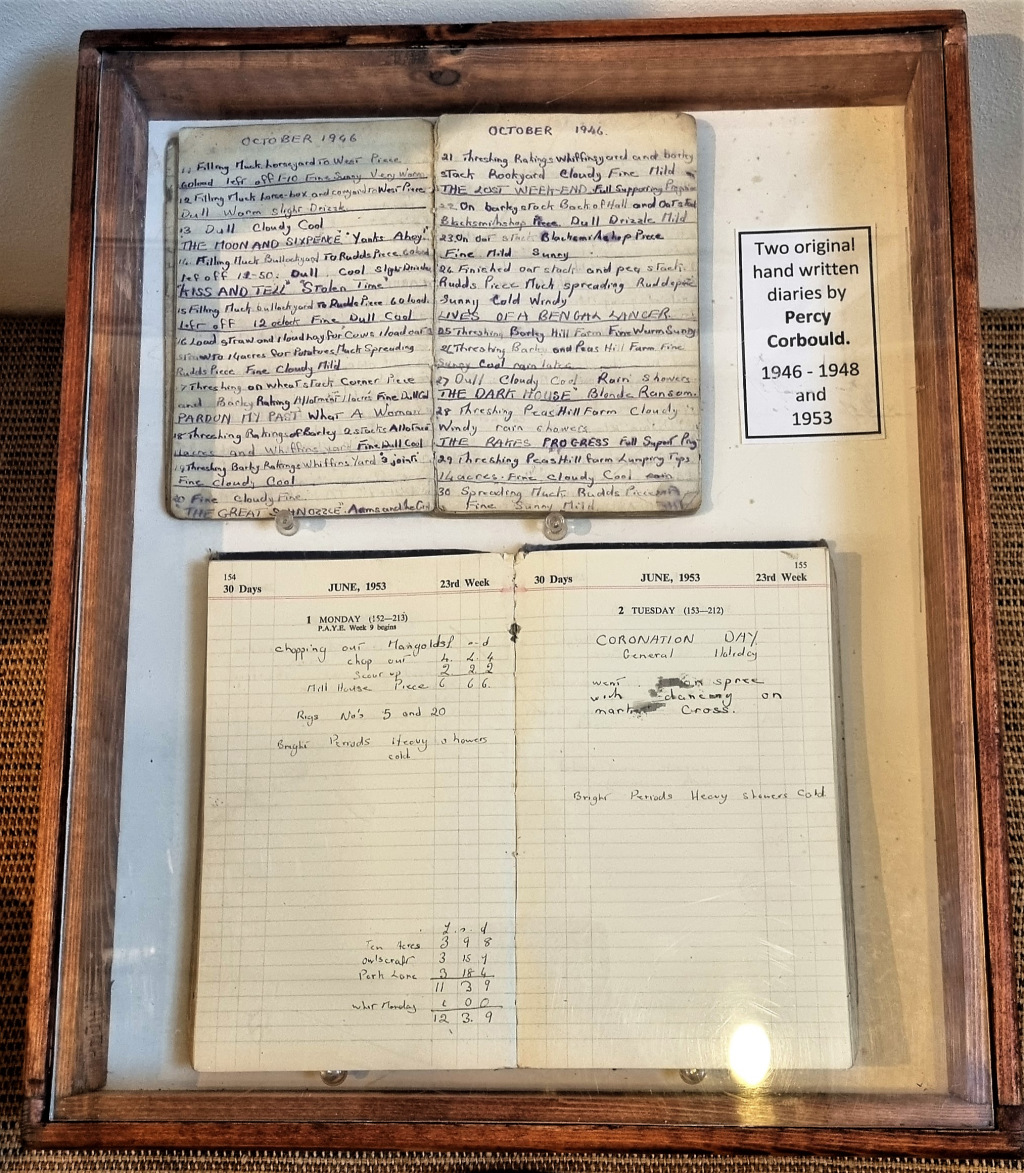 OCTOBER 1946
11 Filling Muck horseyard To West Piece
60 load left off 1-10 Fine Sunny Very Warm
12 Filling Muck horse-box and cowyard to West Piece
Dull Warm slight Drizzle
13 Dull Cloudy Cool
THE MOON AND SIXPENCE "Yanks Ahoy"
14. Filling Muck Bullockyard To Rudds Piece 60 load
left off 12-50. Dull. Cool Slight Drizzle
"KISS AND TELL" "Stolen Time"
15 Filling Muck bullockyard To Rudds Piece 60 load.
left off 12 oclock Fine Dull Cool
16 Load straw and 1 load hay for Cows 1 load oat
straw to 14 acres for Potatoes Muck Spreading
Rudds Piece Fine Cloudy Mild
17 Threshing on wheat stack Corner Piece
and Barley Raking Allotment 11 acres Fine Dull Cool
PARDON MY PAST What A Woman
18 Threshing Rakings of Barley 2 stacks Allotment
11 acres and Whiffins yard Fine Dull Cool
19 Threshing Barley Rakings Whiffins Yard 3 joints
Fine Cloudy Cool
20 Fine Cloudy Fine
"THE GREAT SCHNOZZLE". Arms and the Girl
OCTOBER 1946.
21 Threshing Rakings Whiffins yard and on barley
stack Rookyard Cloudy Fine Mild
THE LOST WEEK-END. Full Supporting
22 On barley stack Back of Hall and Oat
Blacksmithshop Piece Dull Drizzle Mild
23 On oat stack Blacksmithshop Piece
Fine Mild Suney
24 Finished oat stack and pea stack
Rudds Piece Muck spreading
Sunny Cold Windy
LIVES OF A BENGAL LANCER
25 Threshing Barley Hill Farm Fine Warm Sunny
26 Threshing Barley and Peas Hill Farm Fine
Sunny Cool rain later
27 Dull Cloudy Cool Rain Showers
THE DARK HOUSE" Blonde Ransom.
28 Threshing Peas Hill Farm Cloudy
Windy rain showers
THE RAKES PROGRESS Full Support Prog
29 Threshing Peas Hill farm Lumping Tops
14 acres. Fine Cloudy Cool
30 Spreading Muck Rudds Piece
Fine Sunny Mild
Two original
hand written
diaries by
Percy
Corbould.
1946 - 1948
and
1953
154
30 Days JUNE, 1953 23rd Week
1 MONDAY (152—213)
P.A.Y.E. Week 9 begins
chopping out Mangolds £ s d
chop out 4. 4. 4
Scour up 2 2 2
Mill House Piece 6 6 6.
Rigs No's 5 and 20
Bright Periods Heavy showers
cold
£ s d
Ten Acres 3 9 8
owlscraft 3 15
Park Lane 3 18 4
11 3 9
whit Monday 1 0 0
12 3. 9
155
30 Days JUNE, 1953 23rd Week
2 TUESDAY (153—212)
CORONATION DAY
General Holiday
went on spree
with dancing on
Cross.
Bright Periods Heavy showers Cold